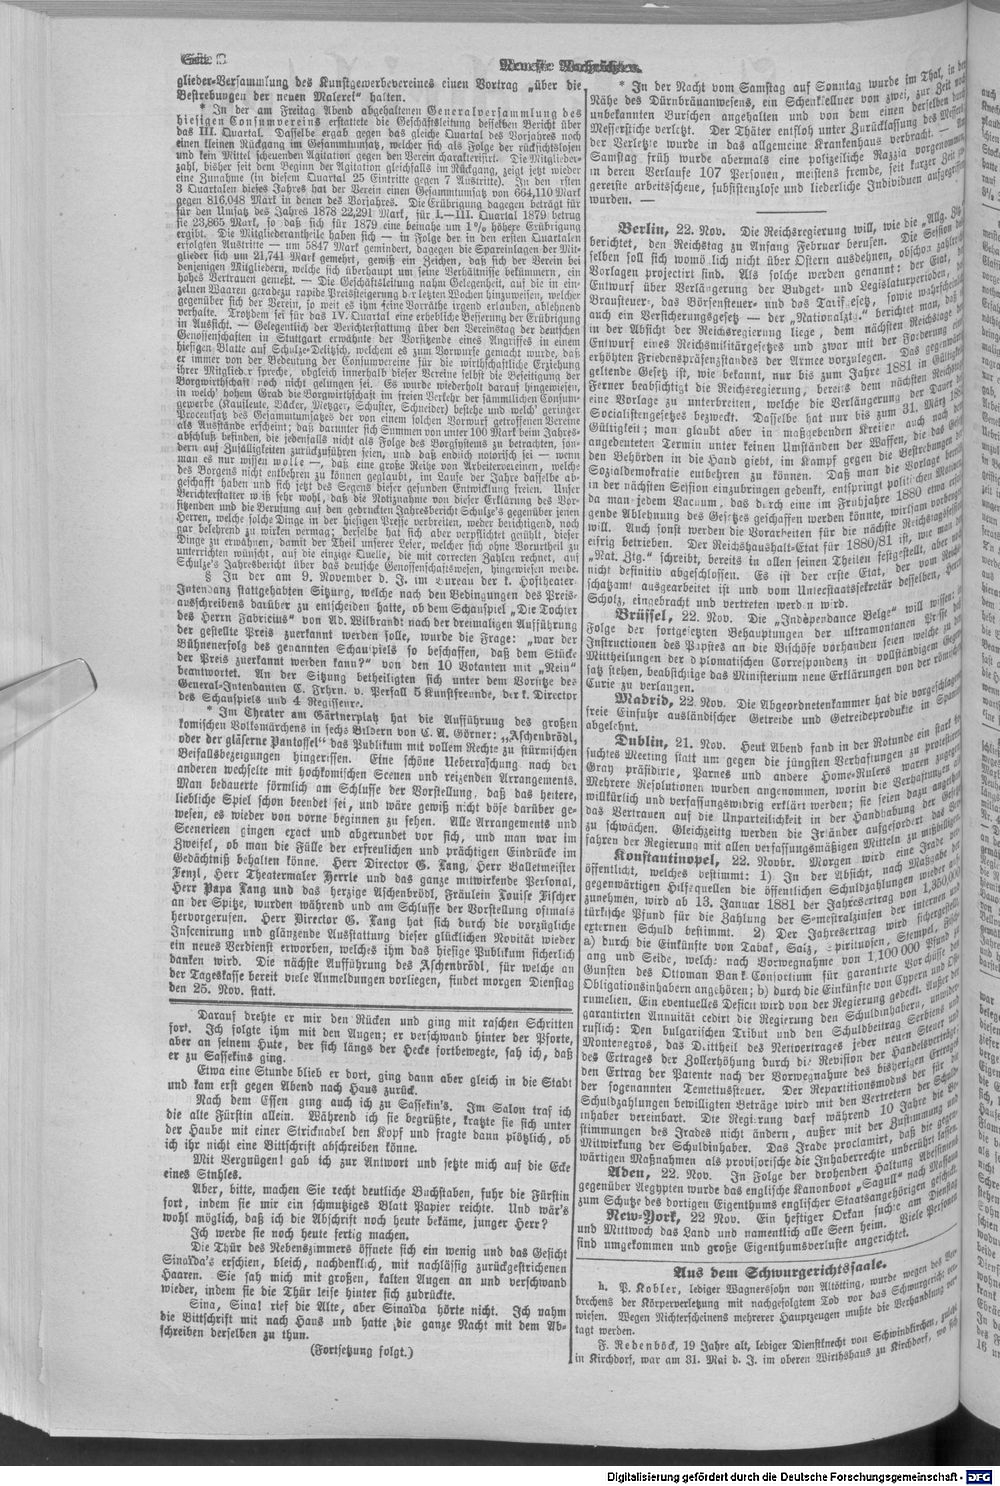 Seite 3
Neueste Nachrichten.
glieder-Versammlung des Kunstgewerbevereines einen Vortrag „über die
Bestrebungen der neuen Malerei“ halten.
* In der am Freitag Abend abgehaltenen Generalversammlung des
hiesigen Consumvereins erstattete die Geschäftsleitung desselben Bericht über
das III. Quartal. Dasselbe ergab gegen das gleiche Quartal des Vorjahres noch
einen kleinen Rückgang im Gesammtumsatz, welcher sich als Folge der rücksichtslosen
und kein Mittel scheuenden Agitation gegen den Verein charakterisirt. Die Mitglieder-
zahl, bisher seit dem Beginn der Agitation gleichfalls im Rückgang, zeigt jetzt wieder
eine Zunahme (in diesem Quartal 25 Eintritte gegen 7 Austritte). In den ersten
3 Quartalen dieses Jahres hat der Verein einen Gesammtumsatz von 664,110 Mark
gegen 816,048 Mark in denen des Vorjahres. Die Erübrigung dagegen beträgt für
für den Umsatz des Jahres 1878 22,291 Mark, für I.—III. Quartal 1879 betrug
sie 23,865 Mark, so daß sich für 1879 eine beinahe um 1% höhere Erübrigung
ergibt. Die Mitgliederantheile haben sich — in Folge der in den ersten Quartalen
erfolgten Austritte — um 5847 Mark gemindert, dagegen die Spareinlagen der Mit-
glieder sich um 21,741 Mark gemehrt, gewiß ein Zeichen, daß sich der Verein bei
denjenigen Mitgliedern, welche sich überhaupt um seine Verhältnisse bekümmern, ein
hohes Vertrauen genießt. — Die Geschäftsleitung nahm Gelegenheit, auf die in ein-
zelnen Waaren geradezu rapide Preissteigerung der letzten Wochen hinzuweisen, welcher
gegenüber sich der Verein, so weit es ihm seine Vorräthe irgend erlauben, ablehnend
verhalte. Trotzdem sei für das IV. Quartal eine erhebliche Besserung der Erübrigung
in Aussicht. — Gelegentlich der Berichterstattung über den Vereinstag der deutschen
Genossenschaften in Stuttgart erwähnte der Vorsitzende eines Angriffes in einem
hiesigen Blatte auf Schulze-Delitzsch, welchem es zum Vorwurfe gemacht wurde, daß
er immer von der Bedeutung der Consumvereine für die wirthschaftliche Erziehung
ihrer Mitglieder spreche, obgleich innerhalb dieser Vereine selbst die Beseitigung der
Borgwirthschaft noch nicht gelungen sei. Es wurde wiederholt darauf hingewiesen,
in welch' hohem Grad die Borgwirthschaft im freien Verkehr der sämmtlichen Consum-
gewerbe (Kaufleute, Bäcker, Metzger, Schuster, Schneider) bestehe und welch' geringer
Procentsatz des Gesammtumsatzes der von einem solchen Vorwurf getroffenen Vereine
als Ausstände erscheint; daß darunter sich Summen von unter 100 Mark beim Jahres-
abschluß befinden, die jedenfalls nicht als Folge des Borgsystems zu betrachten, son-
dern auf Zufälligkeiten zurückzuführen seien, und daß endlich notorisch sei — wenn
man es nur wissen wolle —, daß eine große Reihe von Arbeitervereinen, welche
des Borgens nicht entbehren zu können geglaubt, im Laufe der Jahre dasselbe ab-
geschafft haben und sich jetzt des Segens dieser gesunden Entwicklung freien. Unser
Berichterstatter weiß sehr wohl, daß die Notiznahme von dieser Erklärung des Vor-
sitzenden und die Berufung auf den gedruckten Jahresbericht Schulze's gegenüber jenen
Herren, welche solche Dinge in der hiesigen Presse verbreiten, weder berichtigend, noch
gar belehrend zu wirken vermag; derselbe hat sich aber verpflichtet gefühlt, dieser
Dinge zu erwähnen, damit der Theil unserer Leser, welcher sich ohne Vorurtheil zu
unterrichten wünscht, auf die einzige Quelle, die mit correcten Zahlen rechnet, auf
Schulze's Jahresbericht über das deutsche Genossenschaftswesen, hingewiesen werde.
§ In der am 9. November d. J. im Bureau der k. Hoftheater
Intendanz stattgehabten Sitzung, welche nach den Bedingungen des Preis-
ausschreibens darüber zu entscheiden hatte, ob dem Schauspiel „Die Tochter
des Herrn Fabricius“ von Ad. Wilbrandt nach der dreimaligen Aufführung
der gestellte Preis zuerkannt werden solle, wurde die Frage: „war der
Bühnenerfolg des genannten Schauspiels so beschaffen, daß dem Stücke
der Preis zuerkannt werden kann?“ von den 10 Votanten mit „Nein“
beantwortet. An der Sitzung betheiligten sich unter dem Vorsitze des
General-Intendanten C. Frhrn. v. Perfall 5 Kunstfreunde, der k. Director
des Schauspiels und 4 Regisseure.
* Im Theater am Gärtnerplatz hat die Aufführung des großen
komischen Volksmärchens in sechs Bildern von C. A. Görner: „Aschenbrödl,
oder der gläserne Pantoffel“ das Publikum mit vollem Rechte zu stürmischen
Beifallsbezeigungen hingerissen. Eine schöne Ueberraschung nach der
anderen wechselte mit hochkomischen Scenen und reizenden Arrangements.
Man bedauerte förmlich am Schlusse der Vorstellung, daß das heitere,
liebliche Spiel schon beendet sei, und wäre gewiß nicht böse darüber ge-
wesen, es wieder von vorne beginnen zu sehen. Alle Arrangements und
Scenerieen gingen exact und abgerundet vor sich, und man war im
Zweifel, ob man die Fülle der erfreulichen und prächtigen Eindrücke im
Gedächtniß behalten könne. Herr Director G. Lang, Herr Balletmeister
Fenzl, Herr Theatermaler Herrle und das ganze mitwirkende Personal,
Herr Papa Lang und das herzige Aschenbrödl, Fräulein Louise Fischer
an der Spitze, wurden während und am Schlusse der Vorstellung oftmals
hervorgerufen. Herr Director G. Lang hat sich durch die vorzügliche
Inscenirung und glänzende Ausstattung dieser glücklichen Novität wieder
ein neues Verdienst erworben, welches ihm das hiesige Publikum sicherlich
danken wird. Die nächste Aufführung des Aschenbrödl, für welche an
der Tageskasse bereit viele Anmeldungen vorliegen, findet morgen Dienstag
den 25. Nov. statt.
Darauf drehte er mir den Rücken und ging mit raschen Schritten
fort. Ich folgte ihm mit den Augen; er verschwand hinter der Pforte,
aber an seinem Hute, der sich längs der Hecke fortbewegte, sah ich, daß
er zu Sassekins ging.
Etwa eine Stunde blieb er dort, ging dann aber gleich in die Stadt
und kam erst gegen Abend nach Haus zurück.
Nach dem Essen ging auch ich zu Sassekin's. Im Salon traf ich
die alte Fürstin allein. Während ich sie begrüßte, kratzte sie sich unter
der Haube mit einer Stricknadel den Kopf und fragte dann plötzlich, ob
ich ihr nicht eine Bittschrift abschreiben könne.
Mit Vergnügen! gab ich zur Antwort und setzte mich auf die Ecke
eines Stuhles.
Aber, bitte, machen Sie recht deutliche Buchstaben, fuhr die Fürstin
fort, indem sie mir ein schmutziges Blatt Papier reichte. Und wär's
wohl möglich, daß ich die Abschrift noch heute bekäme, junger Herr?
Ich werde sie noch heute fertig machen.
Die Thür des Nebenzimmers öffnete sich ein wenig und das Gesicht
Sinaïda's erschien, bleich, nachdenklich, mit nachlässig zurückgestrichenen
Haaren. Sie sah mich mit großen, kalten Augen an und verschwand
wieder, indem sie die Thür leise hinter sich zudrückte.
Sina, Sina! rief die Alte, aber Sinaïda hörte nicht. Ich nahm
die Bittschrift mit nach Haus und hatte die ganze Nacht mit dem Ab-
schreiben derselben zu thun.
(Fortsetzung folgt.)
* In der Nacht vom Samstag auf Sonntag wurde im Thal, in der
Nähe des Dürnbräuanwesens, ein Schenkkellner von zwei, zur Zeit noch
unbekannten Burschen angehalten und von dem einen derselben durch
Messerstiche verletzt. Der Thäter entfloh unter Zurücklassung des Messers,
der Verletzte wurde in das allgemeine Krankenhaus verbracht. —
Samstag früh wurde abermals eine polizeiliche Razzia vorgenommen,
in deren Verlaufe 107 Personen, meistens fremde, seit kurzer Zeit
gereiste arbeitsscheue, subsistenzlose und liederliche Individuen aufgegriffen
wurden. —
Berlin, 22. Nov. Die Reichsregierung will, wie die „Allg. Ztg.“
berichtet, den Reichstag zu Anfang Februar berufen. Die Session des-
selben soll sich womöglich nicht über Ostern ausdehnen, obschon zahlreiche
Vorlagen projectirt sind. Als solche werden genannt: der Etat, der
Entwurf über Verlängerung der Budget- und Legislaturperioden, das
Brausteuer-, das Börsensteuer- und das Tarifgesetz, sowie wahrscheinlich
auch ein Versicherungsgesetz — der „Nationalztg.“ berichtet man, daß es
in der Absicht der Reichsregierung liege, dem nächsten Reichstage den
Entwurf eines Reichsmilitärgesetzes und zwar mit der Forderung eines
erhöhten Friedenspräsenzstandes der Armee vorzulegen. Das gegenwärtig
geltende Gesetz ist, wie bekannt, nur bis zum Jahre 1881 in Gültigkeit.
Ferner beabsichtigt die Reichsregierung, bereits dem nächsten Reichstag
eine Vorlage zu unterbreiten, welche die Verlängerung der Dauer des
Socialistengesetzes bezweckt. Dasselbe hat nur bis zum 31. März 1881
Gültigkeit; man glaubt aber in maßgebenden Kreisen auch nach dem
angedeuteten Termin unter keinen Umständen der Waffen, die das Gesetz
den Behörden in die Hand giebt, im Kampf gegen die Bestrebungen der
Sozialdemokratie entbehren zu können. Daß man die Vorlage bereits
in der nächsten Session einzubringen gedenkt, entspringt politischen Motiven,
da man jedem Vacuum, das durch eine im Frühjahre 1880 etwa erfol-
gende Ablehnung des Gesetzes geschaffen werden könnte, wirksam vorbeugen
will. Auch sonst werden die Vorarbeiten für die nächste Reichstagssession
eifrig betrieben. Der Reichshaushalt-Etat für 1880/81 ist, wie man der
„Nat. Ztg.“ schreibt, bereits in allen seinen Theilen festgestellt, aber noch
nicht definitiv abgeschlossen. Es ist der erste Etat, der vom Reichs-
schatzamt ausgearbeitet ist und vom Unterstaatssekretär desselben, Herrn
Scholz, eingebracht und vertreten werden wird.
Brüssel, 22. Nov. Die „Indépendance Belge“ will wissen: in
Folge der fortgesetzten Behauptungen der ultramontanen Presse, daß
Instructionen des Papstes an die Bischöfe vorhanden seien welche zu den
Mittheilungen der diplomatischen Correspondenz in vollständigem Gegen-
satz stehen, beabsichtige das Ministerium neue Erklärungen von der römischen
Curie zu verlangen.
Madrid, 22. Nov. Die Abgeordnetenkammer hat die vorgeschlagene
freie Einfuhr ausländischer Getreide und Getreideprodukte in Spanien
abgelehnt.
Dublin, 21. Nov. Heut Abend fand in der Rotunde ein stark be-
suchtes Meeting statt um gegen die jüngsten Verhaftungen zu protestiren.
Gray präsidirte, Parnes und andere Home-Rulers waren zugegen.
Mehrere Resolutionen wurden angenommen, worin die Verhaftungen als
willkürlich und verfassungswidrig erklärt werden; sie seien dazu angethan
das Vertrauen auf die Unparteilichkeit in der Handhabung der Gesetze
zu schwächen. Gleichzeitig werden die Irländer aufgefordert das Ver-
fahren der Regierung mit allen verfassungsmäßigen Mitteln zu mißbilligen.
Konstantinopel, 22. Novbr. Morgen wird eine Irade ver-
öffentlicht, welches bestimmt: 1) In der Absicht, nach Maßgabe der
gegenwärtigen Hilfsquellen die öffentlichen Schuldzahlungen wieder auf-
zunehmen, wird ab 13. Januar 1881 der Jahresertrag von 1,350,000
türkische Pfund für die Zahlung der Semestralzinsen der internen und
externen Schuld bestimmt. 2) Der Jahresertrag wird sichergestellt:
a) durch die Einkünfte von Tabak, Salz, Spirituosen, Stempel, Fisch-
ang und Seide, welche nach Vorwegnahme von 1,100,000 Pfund zu
Gunsten des Ottoman Bank Consortium für garantirte Vorschüsse den
Obligationsinhabern angehören; b) durch die Einkünfte von Cypern und Ost-
rumelien. Ein eventuelles Deficit wird von der Regierung gedeckt. Außer der
garantirten Annuität cedirt die Regierung den Schuldinhabern, unwider-
ruflich: Den bulgarischen Tribut und den Schuldbeitrag Serbiens und
Montenegros, das Drittheil des Nettoertrages jeder neuen Steuer und
des Ertrages der Zollerhöhung durch die Revision der Handelsverträge,
den Ertrag der Patente nach der Vorwegnahme des bisherigen Ertrages
der sogenannten Temettusteuer. Der Repartitionsmodus der für die
Schuldzahlungen bewilligten Beträge wird mit den Vertretern der Schuld-
inhaber vereinbart. Die Regierung darf während 10 Jahre die Be-
stimmungen des Irades nicht ändern, außer mit der Zustimmung und
Mitwirkung der Schuldinhaber. Das Irade proclamirt, daß die gegen-
wärtigen Maßnahmen als provisorische die Inhaberrechte unberührt lassen.
Aden, 22. Nov. In Folge der drohenden Haltung Abessiniens
gegenüber Aegypten wurde das englische Kanonboot „Sagull“ nach Massaua
zum Schutze des dortigen Eigenthums englischer Staatsangehörigen geschickt.
New-York, 22 Nov. Ein heftiger Orkan suchte am Dienstag
und Mittwoch das Land und namentlich alle Seen heim. Viele Personen
sind umgekommen und große Eigenthumsverluste angerichtet.
Aus dem Schwurgerichtssaale.
h. P. Kobler, lediger Wagnerssohn von Altötting, wurde wegen des Ver-
brechens der Körperverletzung mit nachgefolgtem Tod vor das Schwurgericht ver-
wiesen. Wegen Nichterscheinens mehrerer Hauptzeugen mußte die Verhandlung ver-
tagt werden.
F. Redenböck, 19 Jahre alt, lediger Dienstknecht von Schwindkirchen,
in Kirchdorf, war am 31. Mai d. J. im oberen Wirthshaus zu Kirchdorf, wo sich
Digitalisierung gefördert durch die Deutsche Forschungsgemeinschaft - DFG